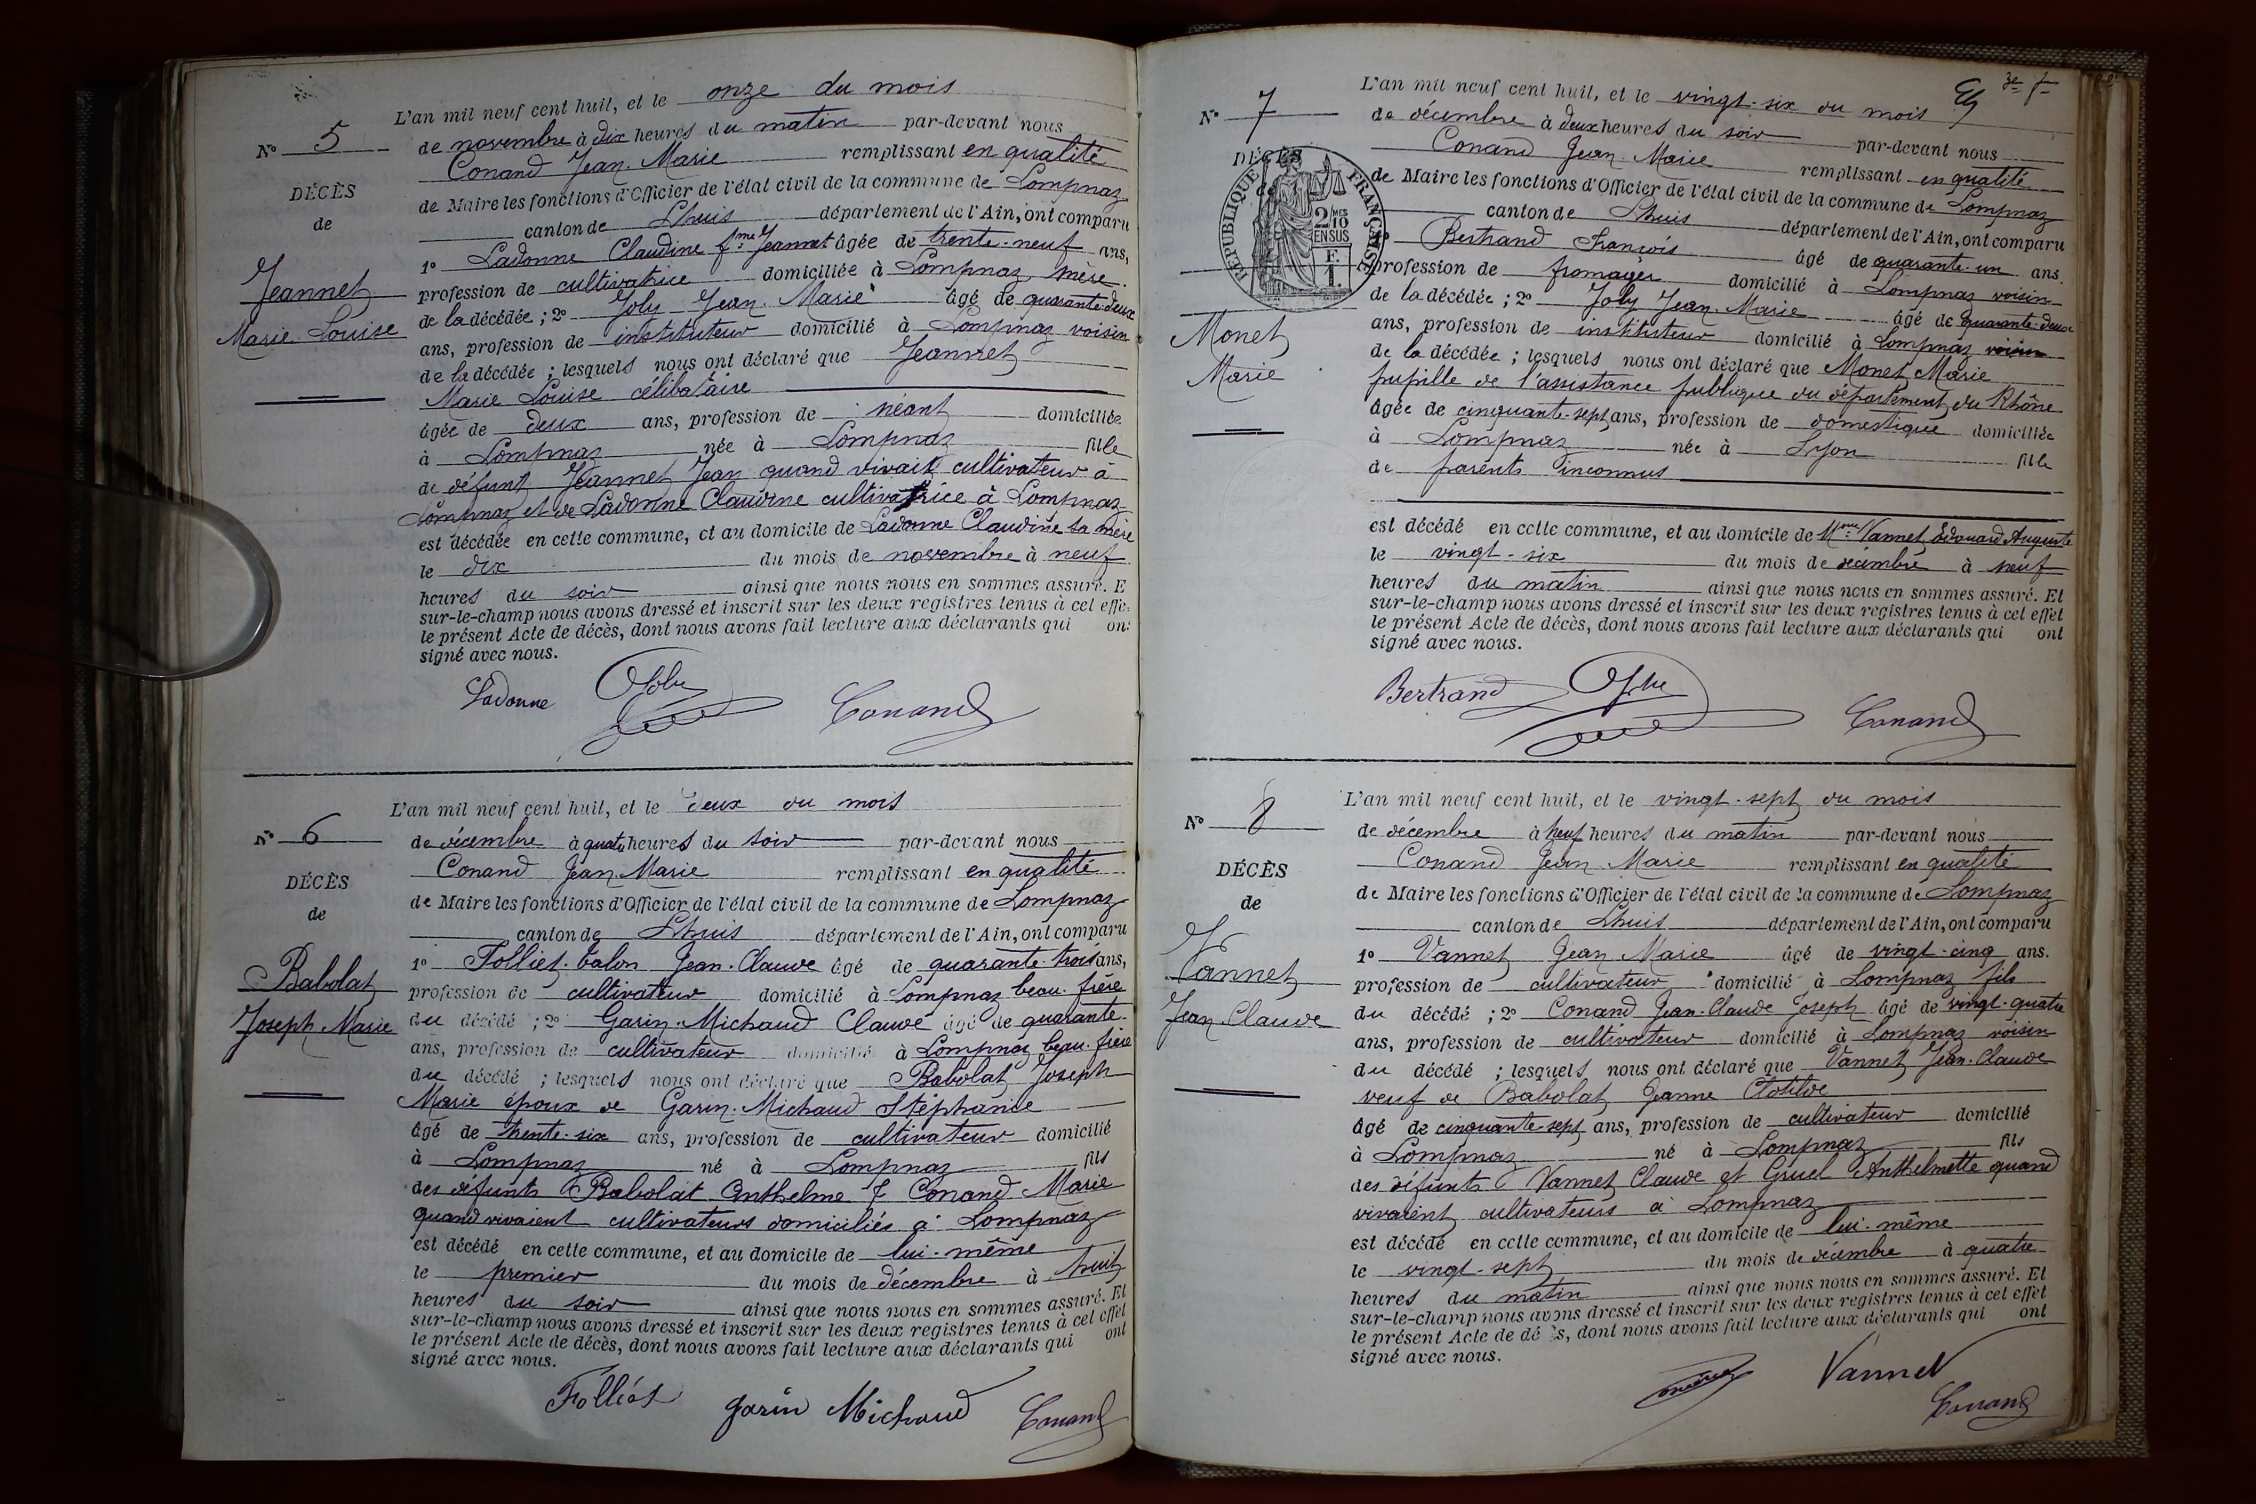 L'an mil neuf cent huit, et le onze du mois
N° 5
de novembre à dix heures du matin par-devant nous
Conand Jean-Marie remplissant en qualité
DÉCÈS
de Maire les fonctions d'Officier de l'état civil de la commune de Lompnaz
de
canton de Lhuis département de l'Ain, ont comparu
1° Ladonne Claudine fme Jeannet âgée de trente-neuf ans,
Jeannet
profession de cultivatrice domiciliée à Lompnaz mère
Marie-Louise
de la décédée ; 2° Joly Jean-Marie âgé de quarante-deux
ans, profession de instituteur domicilié à Lompnaz voisin
de la décédée ; lesquels nous ont déclaré que Jeannet
Marie Louise célibataire
âgée de deux ans, profession de néant domiciliée
à Lompnaz née à Lompnaz fille
de défunt Jeannet Jean quand vivait cultivateur à
Lompnaz et de Ladonne Claudine cultivatrice à Lompnaz
est décédée en cette commune, et au domicile de Ladonne Claudine sa mère
le dix du mois de novembre à neuf
heures du soir ainsi que nous nous en sommes assuré. E
sur-le-champ nous avons dressé et inscrit sur les deux registres tenus à cet effe
le présent Acte de décès, dont nous avons fait lecture aux déclarants qui on
signé avec nous.
Ladonne Joly Conand
L'an mil neuf cent huit, et le deux du mois
N° 6
de décembre à quatre heures du soir par-devant nous
Conand Jean-Marie remplissant en qualité
DÉCÈS
de Maire les fonctions d'Officier de l'état civil de la commune de Lompnaz
de
canton de Lhuis département de l'Ain, ont comparu
1° Folliet-Calon Jean-Claude âgé de quarante-trois ans,
Babolat
profession de cultivateur domicilié à Lompnaz beau-frère
Joseph-Marie
du décédé ; 2° Garin-Michaud Claude âgé de quarante
ans, profession de cultivateur domicilié à Lompnaz beau-frère
du décédé ; lesquels nous ont déclaré que Babolat Joseph
Marie époux de Garin-Michaud Stéphanie
âgé de trente-six ans, profession de cultivateur domicilié
à Lompnaz né à Lompnaz fils
des défunts Babolat Anthelme & Conand Marie
quand vivaient cultivateurs domiciliés à Lompnaz
est décédé en cette commune, et au domicile de lui-même
le premier du mois de décembre à huit
heures du soir ainsi que nous nous en sommes assuré. Et
sur-le-champ nous avons dressé et inscrit sur les deux registres tenus à cet effet
le présent Acte de décès, dont nous avons fait lecture aux déclarants qui ont
signé avec nous.
Folliet Garin Michaud Conand
3e f
L'an mil neuf cent huit, et le vingt-six du mois
N° 7
de décembre à deux heures du soir par-devant nous
Conand Jean-Marie remplissant en qualité
DÉCÈS
de Maire les fonctions d'Officier de l'état civil de la commune de Lompnaz
RÉPUBLIQUE FRANÇAISE
2 MES 10 EN SUS
F. 1.
canton de Lhuis département de l'Ain, ont comparu
Bertrand François âgé de quarante-un ans.
profession de fromager domicilié à Lompnaz voisin
de la décédée ; 2° Joly Jean-Marie âgé de quarante-deux
Monet
ans, profession de instituteur domicilié à Lompnaz voisin
Marie
de la décédée ; lesquels nous ont déclaré que Monet Marie
pupille de l'assistance publique du département du Rhône
âgée de cinquante-sept ans, profession de domestique domiciliée
à Lompnaz née à Lyon fille
de parents inconnus
est décédé en cette commune, et au domicile de Mme Vannet Edouard Auguste
le vingt-six du mois de décembre à neuf
heures du matin ainsi que nous nous en sommes assuré. Et
sur-le-champ nous avons dressé et inscrit sur les deux registres tenus à cet effet
le présent Acte de décès, dont nous avons fait lecture aux déclarants qui ont
signé avec nous.
Bertrand Joly Conand
L'an mil neuf cent huit, et le vingt-sept du mois
N° 8
de décembre à neuf heures du matin par-devant nous
Conand Jean-Marie remplissant en qualité
DÉCÈS
de Maire les fonctions d'Officier de l'état civil de la commune de Lompnaz
de
canton de Lhuis département de l'Ain, ont comparu
1° Vannet Jean Marie âgé de vingt-cinq ans.
Vannet
profession de cultivateur domicilié à Lompnaz fils
Jean-Claude
du décédé ; 2° Conand Jean-Claude Joseph âgé de vingt-quatre
ans, profession de cultivateur domicilié à Lompnaz voisin
du décédé ; lesquels nous ont déclaré que Vannet Jean-Claude
veuf de Babolat Jeanne Clotilde
âgé de cinquante-sept ans, profession de cultivateur domicilié
à Lompnaz né à Lompnaz fils
des défunts Vannet Claude et Gruel Anthelmette quand
vivaient cultivateurs à Lompnaz
est décédé en cette commune, et au domicile de lui-même
le vingt-sept du mois de décembre à quatre
heures du matin ainsi que nous nous en sommes assuré. Et
sur-le-champ nous avons dressé et inscrit sur les deux registres tenus à cet effet
le présent Acte de dé s, dont nous avons fait lecture aux déclarants qui ont
signé avec nous.
Vannet
Conand